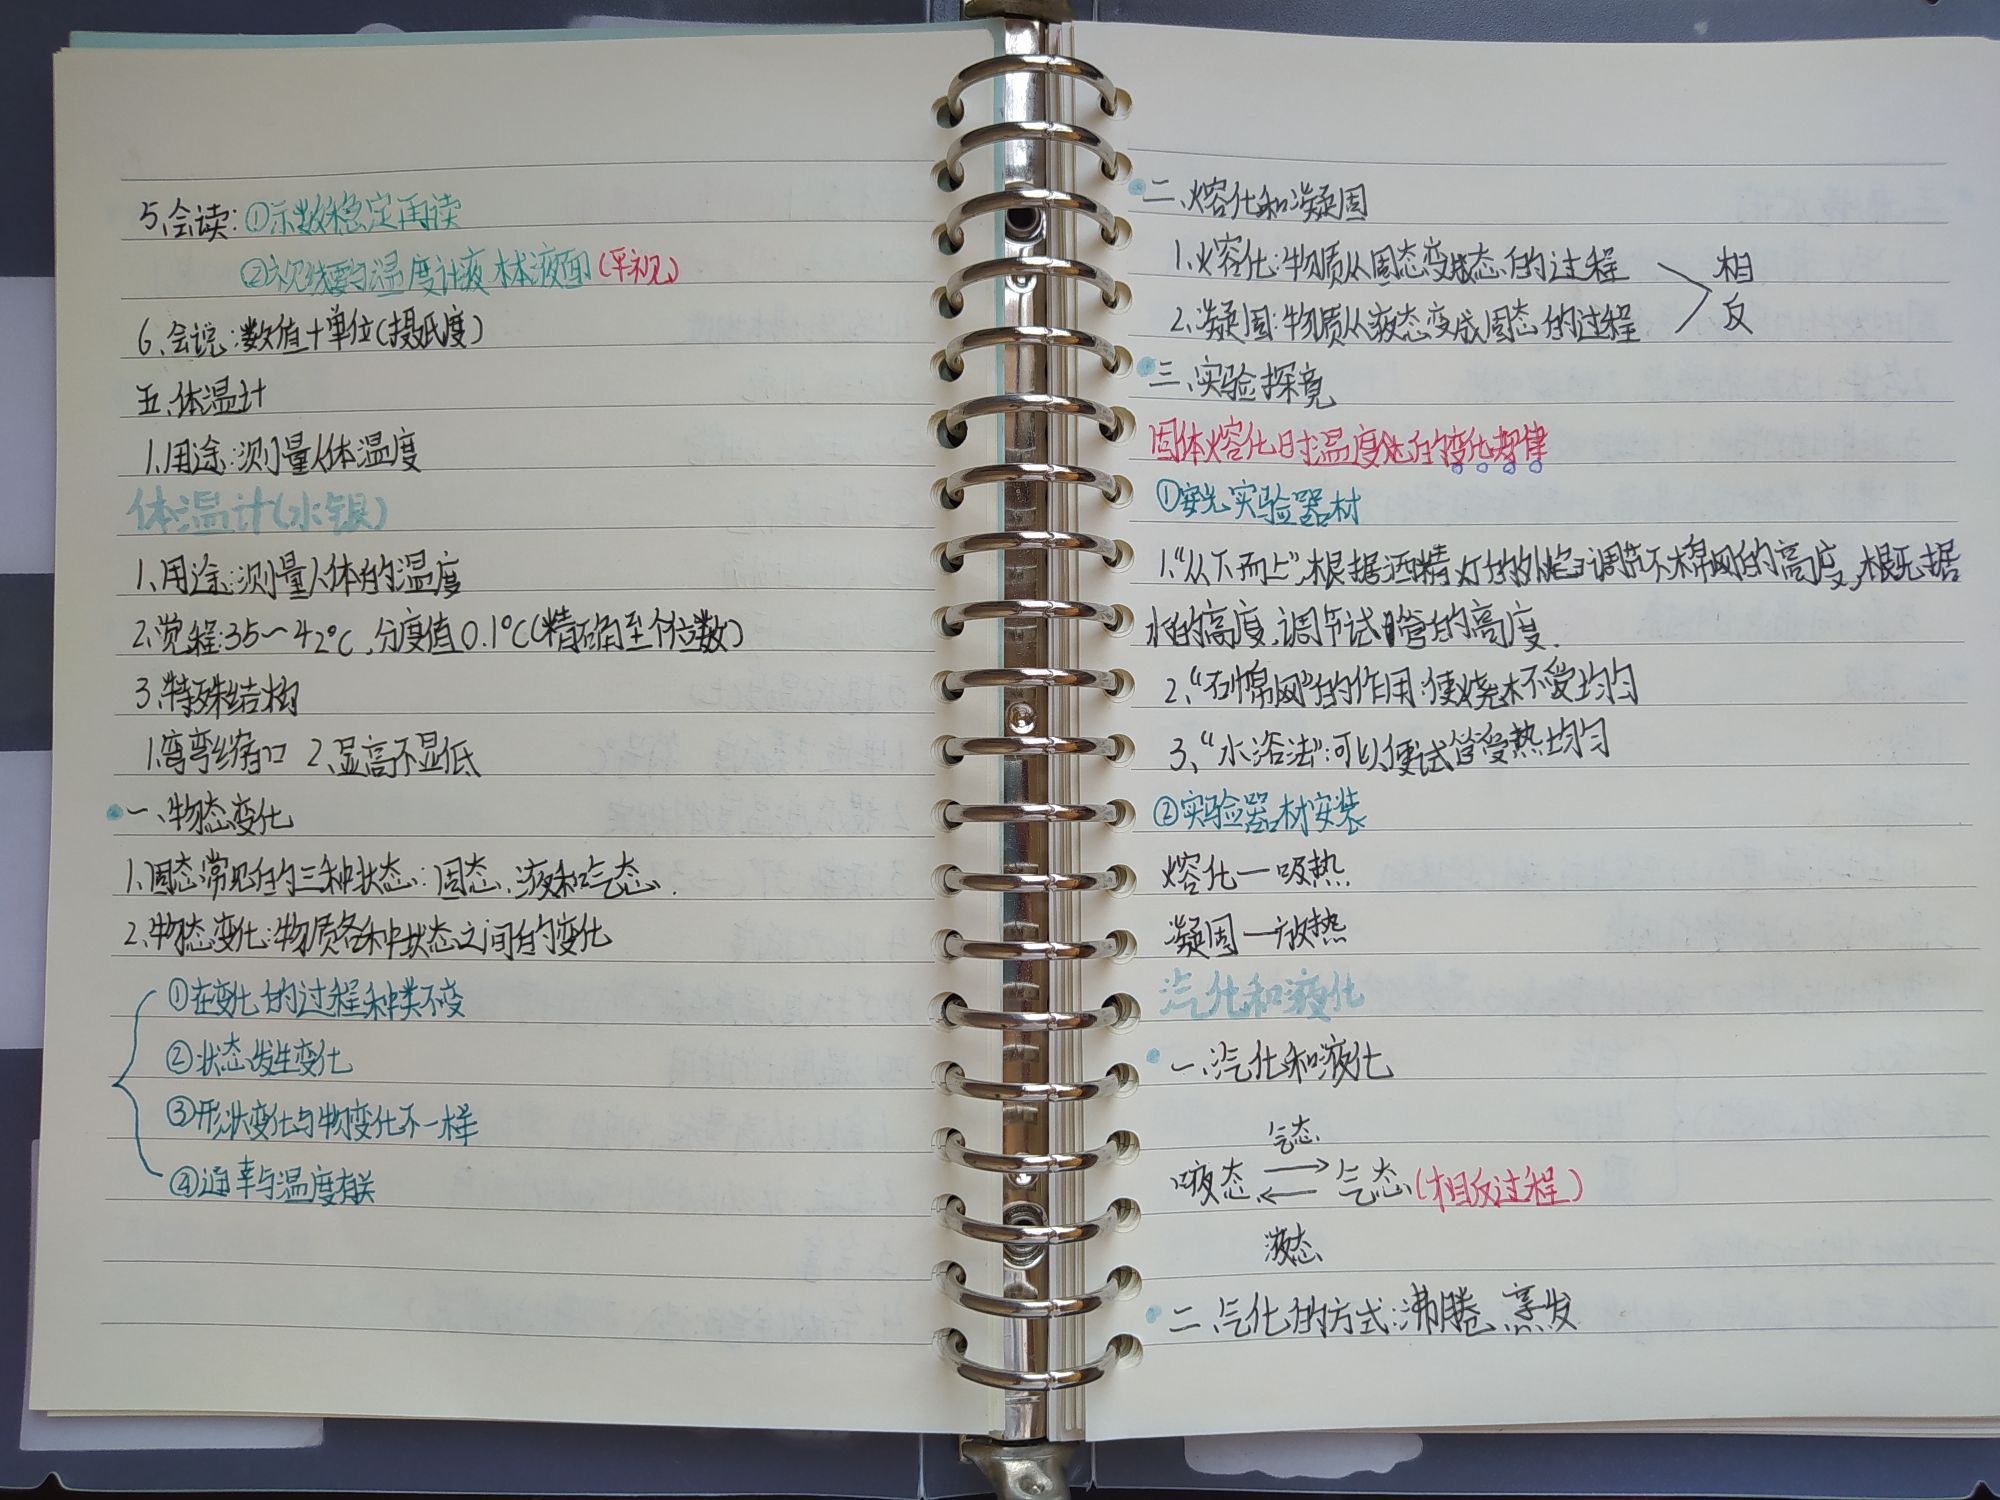 5.会读:①示数稳定再读
②视线要与温度计液柱液面(平视)
6.会说:数值+单位(摄氏度)
五.体温计
1.用途:测量人体温度
体温计(水银)
1.用途:测量人体的温度
2.觉程:35~42℃,分度值0.1℃(精确至个位数)
3.特殊结构
1.弯弯缩口 2.显高不显低
一.物态变化
1.固态常见的三种状态:固态、液和气态.
2.物态变化:物质各种状态之间的变化
①在变化的过程种类不变
②状态发生变化
③形状变化与物变化不一样
④通常与温度有关
二.熔化和凝固
1.熔化:物质从固态变成态的过程
2.凝固:物质从液态变成固态的过程
相反
三.实验探究
固体熔化时温度的变化规律
①实验器材
1."从下而上":根据酒精灯的外焰调节石棉网的高度,根据
水的高度,调节试管的高度.
2."石棉网"的作用:使烧杯受均匀
3."水浴法":可以使试管受热均匀
②实验器材安装
熔化一吸热
凝固一放热
汽化和液化
一.汽化和液化
气态
液态 ⇌ 气态(相反过程)
液态
二.气化的方式:沸腾、蒸发